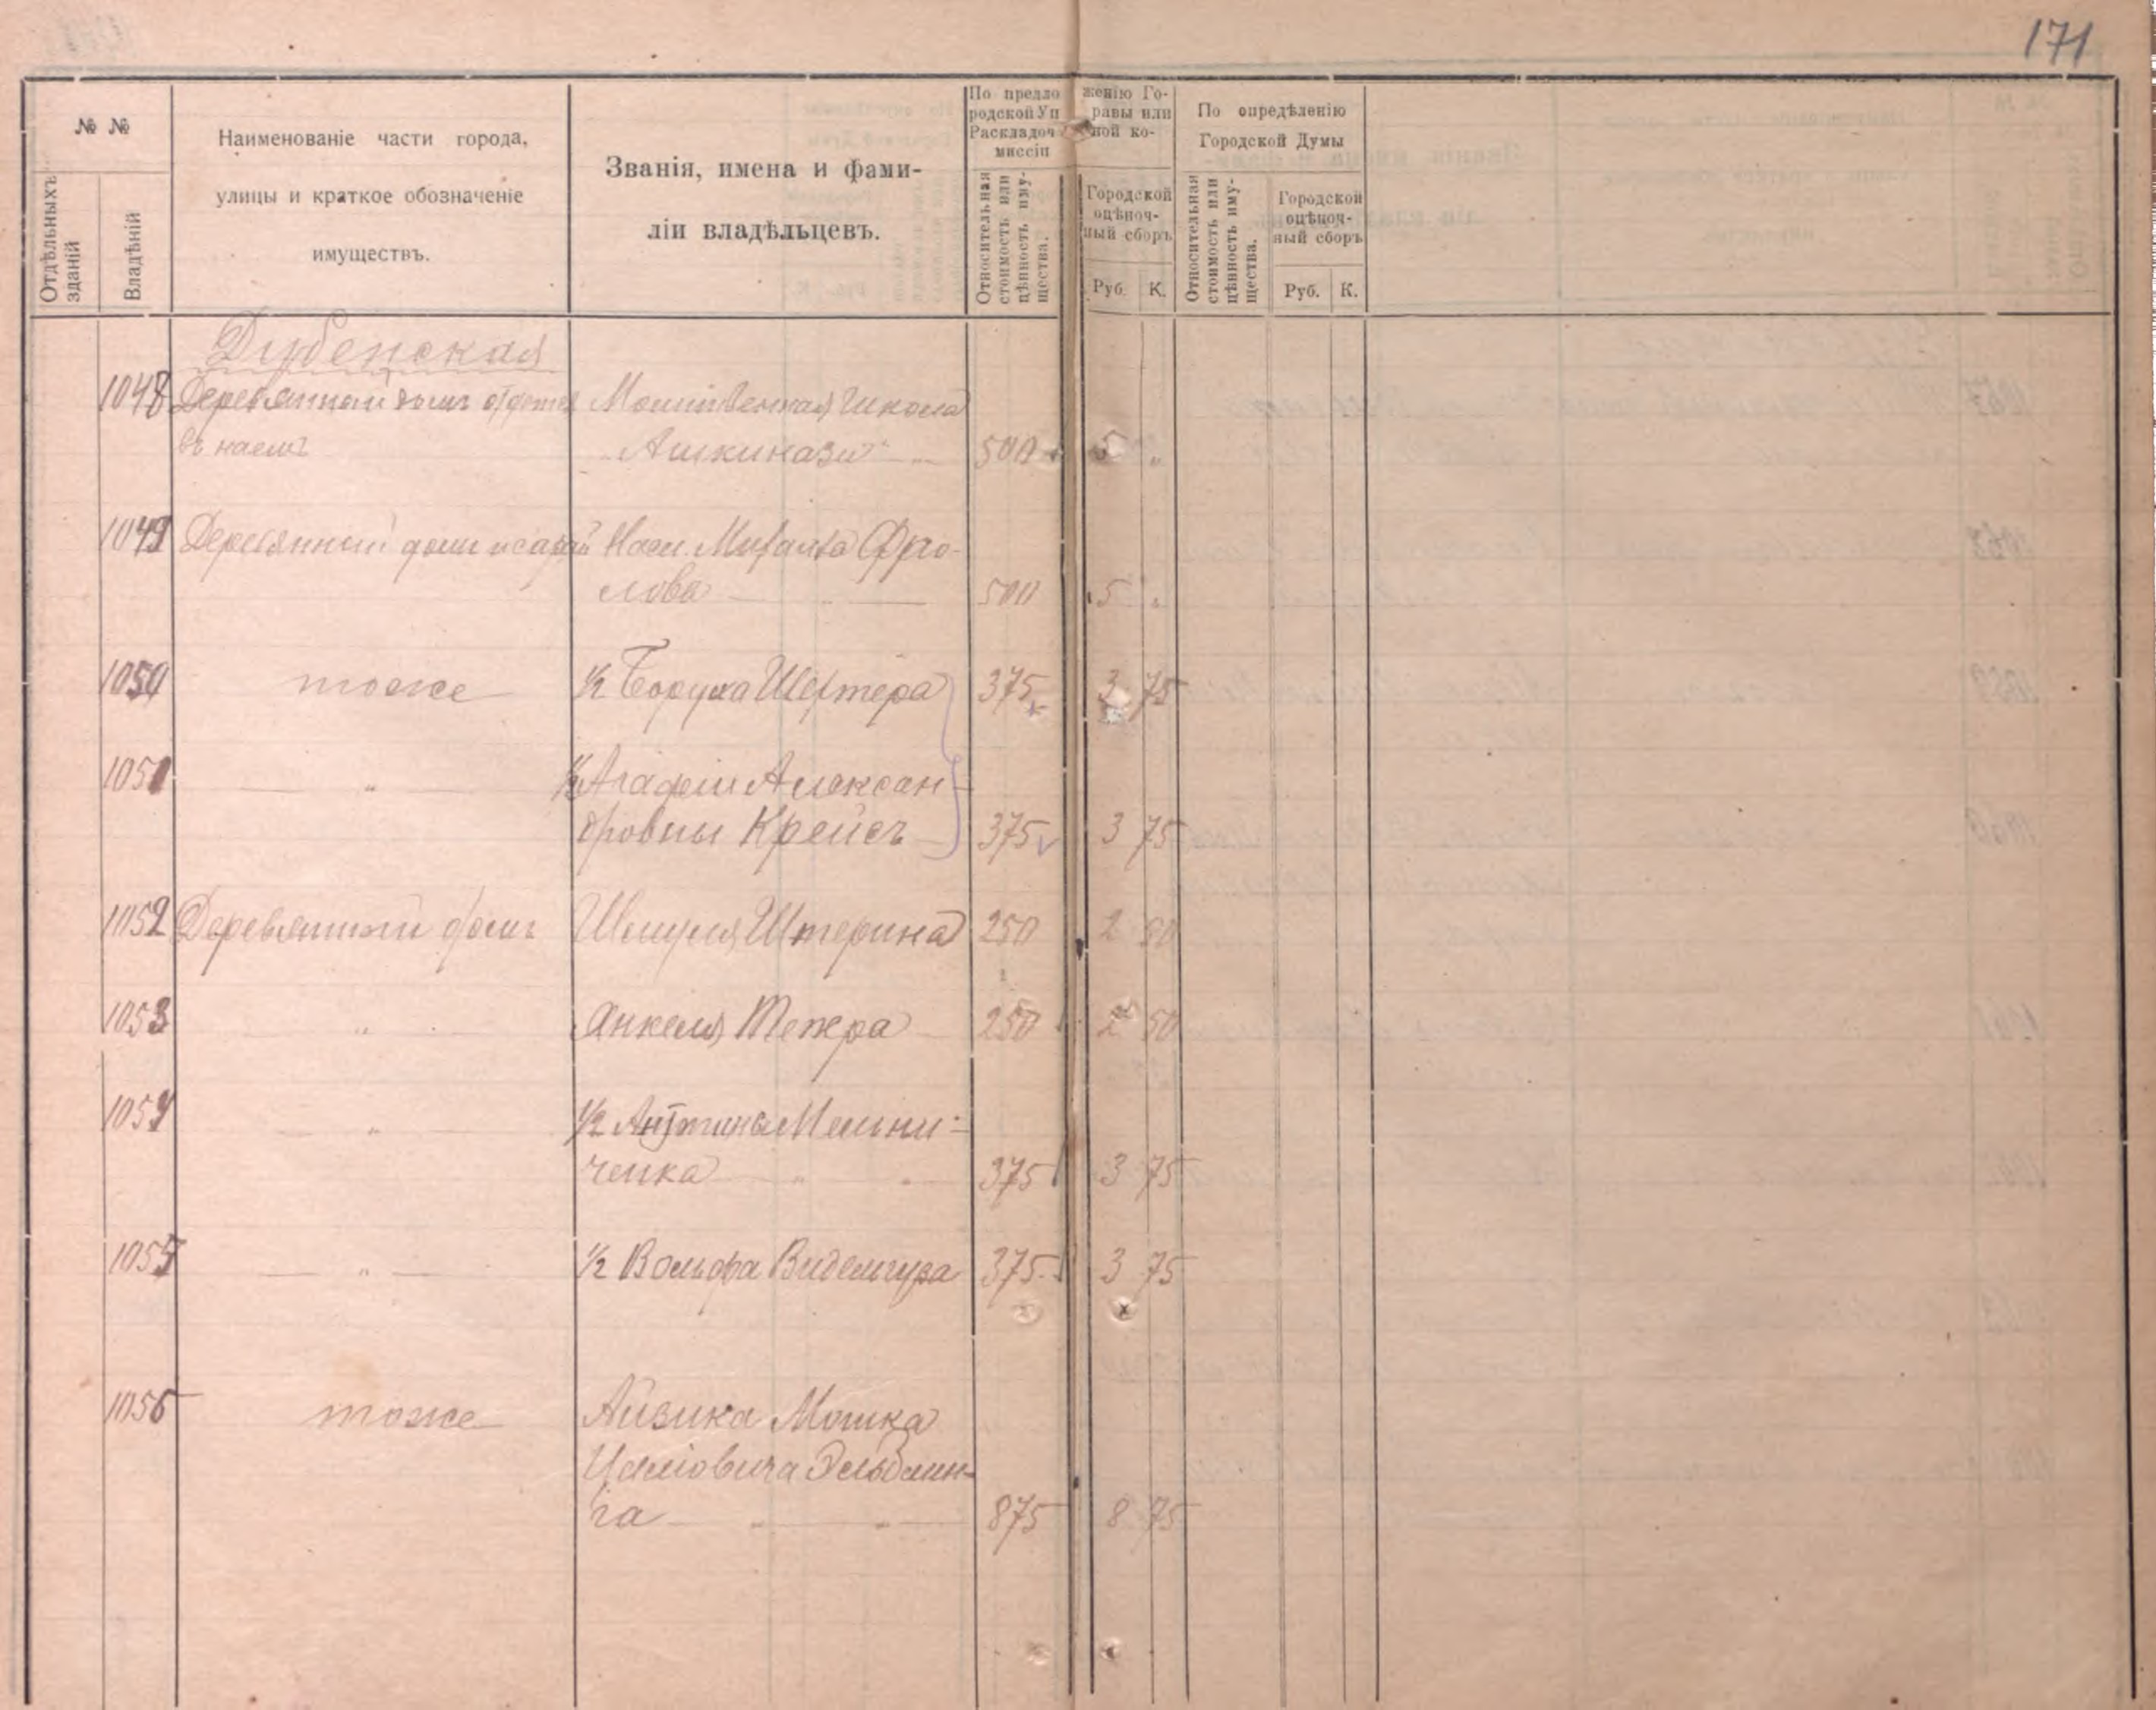 171
№ №
Отдѣльныхъ зданій
Владѣній
Наименованіе части города,
улицы и краткое обозначеніе
имуществъ.
Званія, имена и фами-
ліи владѣльцевъ.
По предложенію Го-
родской Управы или
Раскладочной ко-
миссіи
Относительная стоимость или цѣнность иму-щества.
Городской
оцѣноч-
ный сборъ
Руб. К.
По опредѣленію
Городской Думы
Относительная стоимость или цѣнность иму-щества.
Городской
оцѣноч-
ный сборъ
Руб. К.
Дубенская
1048 Деревянный домъ Молитвенная Школа
въ наемъ „Ашкинази“ 500 5 „
1049 Деревянный домъ и сарай Насл. Фро-
лова 500 5 „
1050 тоже ½ Боруха Шехтера 375 3 75
1051 „ ½ Агафіи Алексан-
дровны Крейсъ 375 3 75
1052 Деревянный домъ Шмуля Штерина 250 2 50
1053 „ Анкеля Тепера 250 2 50
1054 „ ½ Мельни-
ченка 375 3 75
1055 „ ½ Вольфа 375 3 75
1056 тоже Айзика Мошка
875 8 75